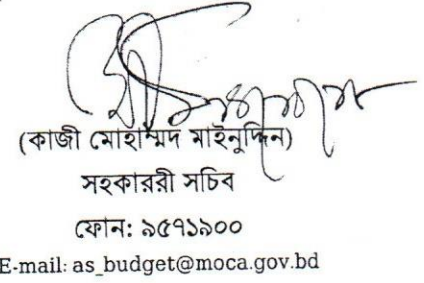 (কাজী মোহাম্মদ মাইনুদ্দিন)
সহকাররী সচিব
ফোন: ৯৫৭১৯০০
E-mail: as_budget@moca.gov.bd